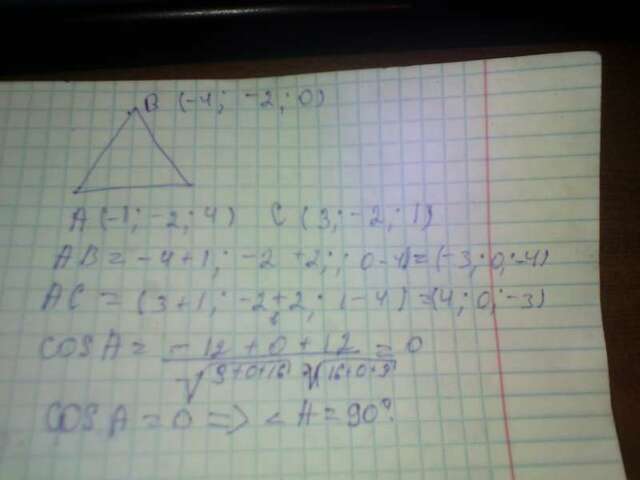 B (-4; -2; 0)
A (-1; -2; 4) C (3; -2; 1)
AB = -4+1; -2 +2; ; 0-4) = (-3; 0; -4)
AC = (3+1; -2+2; 1-4) = (4; 0; -3)
COSA = -12 + 0 + 12 / √9+0+16 · √16+0+9 = 0
COSA = 0 => < A = 90°.